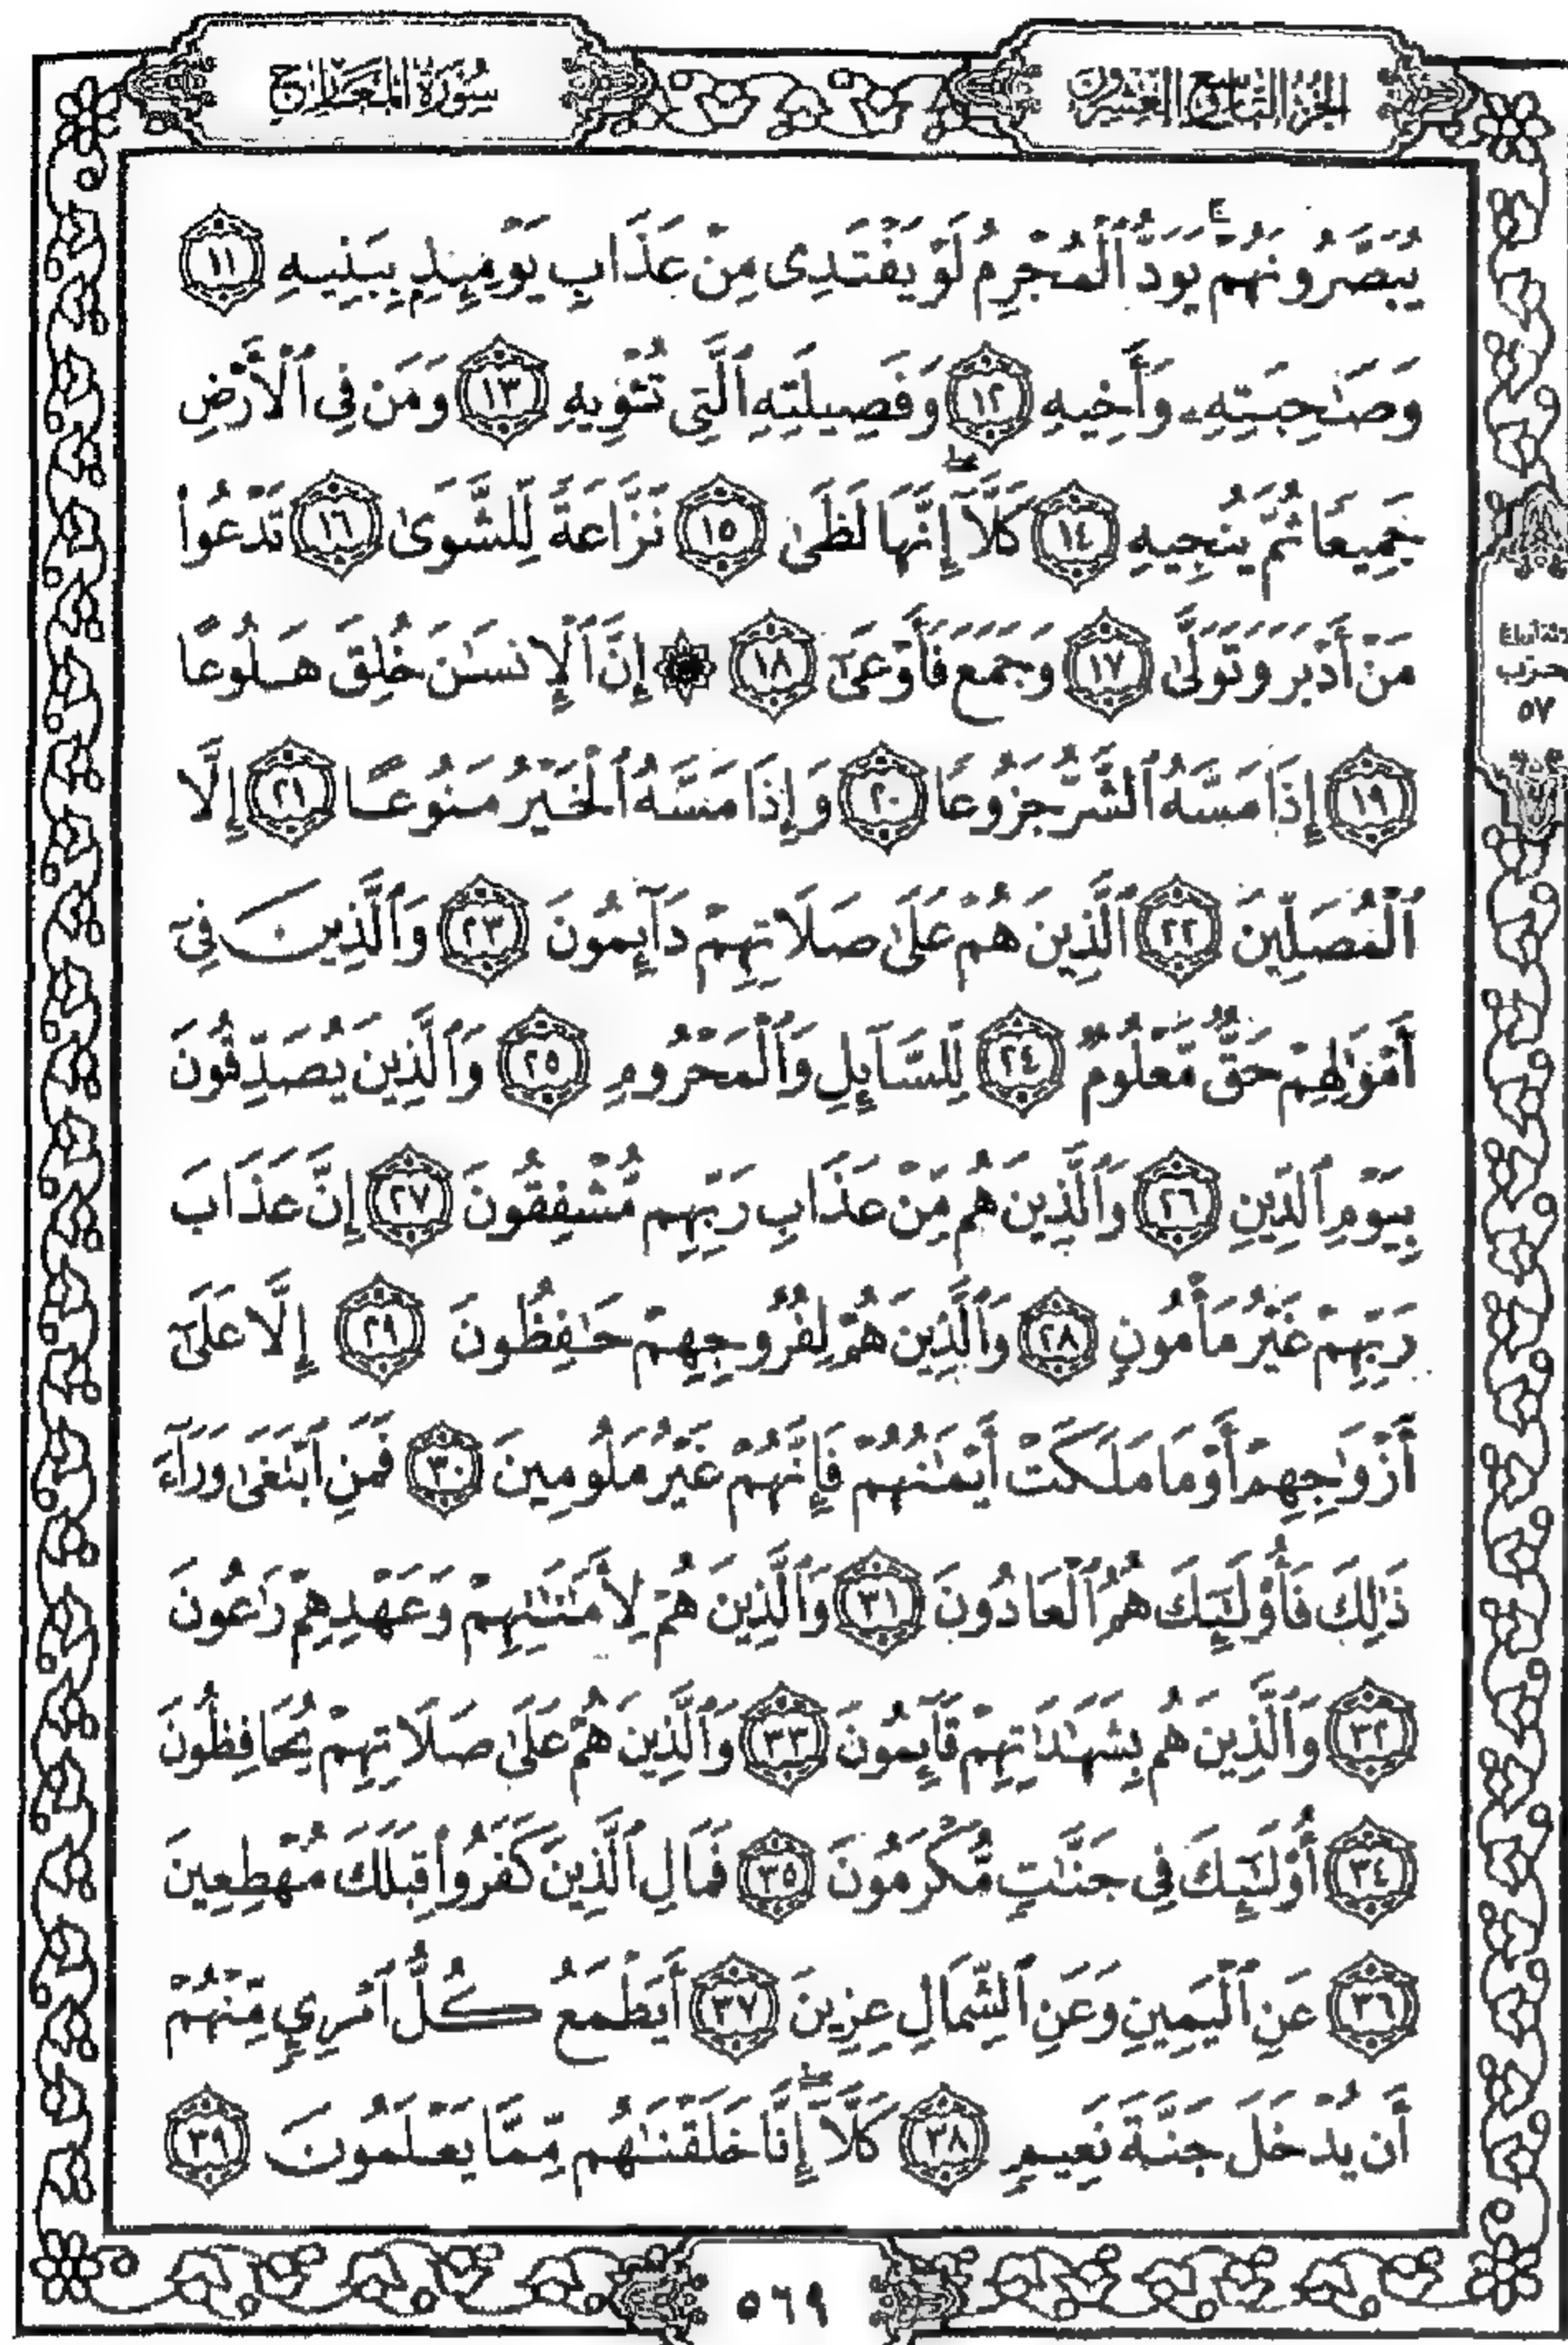 الجزء التاسع والعشرون
سورة المعارج
يُبَصَّرُونَهُمْ ۚ يَوَدُّ ٱلْمُجْرِمُ لَوْ يَفْتَدِى مِنْ عَذَابِ يَوْمِئِذٍۭ بِبَنِيهِ ١١
وَصَـٰحِبَتِهِۦ وَأَخِيهِ ١٢ وَفَصِيلَتِهِ ٱلَّتِى تُـْٔوِيهِ ١٣ وَمَن فِى ٱلْأَرْضِ
جَمِيعًا ثُمَّ يُنجِيهِ ١٤ كَلَّآ ۖ إِنَّهَا لَظَىٰ ١٥ نَزَّاعَةً لِّلشَّوَىٰ ١٦ تَدْعُوا۟
مَنْ أَدْبَرَ وَتَوَلَّىٰ ١٧ وَجَمَعَ فَأَوْعَىٰٓ ١٨ ۞ إِنَّ ٱلْإِنسَـٰنَ خُلِقَ هَلُوعًا
١٩ إِذَا مَسَّهُ ٱلشَّرُّ جَزُوعًا ٢٠ وَإِذَا مَسَّهُ ٱلْخَيْرُ مَنُوعًا ٢١ إِلَّا
ٱلْمُصَلِّينَ ٢٢ ٱلَّذِينَ هُمْ عَلَىٰ صَلَاتِهِمْ دَآئِمُونَ ٢٣ وَٱلَّذِينَ فِىٓ
أَمْوَٰلِهِمْ حَقٌّ مَّعْلُومٌ ٢٤ لِّلسَّآئِلِ وَٱلْمَحْرُومِ ٢٥ وَٱلَّذِينَ يُصَدِّقُونَ
بِيَوْمِ ٱلدِّينِ ٢٦ وَٱلَّذِينَ هُم مِّنْ عَذَابِ رَبِّهِم مُّشْفِقُونَ ٢٧ إِنَّ عَذَابَ
رَبِّهِمْ غَيْرُ مَأْمُونٍ ٢٨ وَٱلَّذِينَ هُمْ لِفُرُوجِهِمْ حَـٰفِظُونَ ٢٩ إِلَّا عَلَىٰٓ
أَزْوَٰجِهِمْ أَوْ مَا مَلَكَتْ أَيْمَـٰنُهُمْ فَإِنَّهُمْ غَيْرُ مَلُومِينَ ٣٠ فَمَنِ ٱبْتَغَىٰ وَرَآءَ
ذَٰلِكَ فَأُو۟لَـٰٓئِكَ هُمُ ٱلْعَادُونَ ٣١ وَٱلَّذِينَ هُمْ لِأَمَـٰنَـٰتِهِمْ وَعَهْدِهِمْ رَٰعُونَ
٣٢ وَٱلَّذِينَ هُم بِشَهَـٰدَٰتِهِمْ قَآئِمُونَ ٣٣ وَٱلَّذِينَ هُمْ عَلَىٰ صَلَاتِهِمْ يُحَافِظُونَ
٣٤ أُو۟لَـٰٓئِكَ فِى جَنَّـٰتٍ مُّكْرَمُونَ ٣٥ فَمَالِ ٱلَّذِينَ كَفَرُوا۟ قِبَلَكَ مُهْطِعِينَ
٣٦ عَنِ ٱلْيَمِينِ وَعَنِ ٱلشِّمَالِ عِزِينَ ٣٧ أَيَطْمَعُ كُلُّ ٱمْرِئٍ مِّنْهُمْ
أَن يُدْخَلَ جَنَّةَ نَعِيمٍ ٣٨ كَلَّآ ۖ إِنَّا خَلَقْنَـٰهُم مِّمَّا يَعْلَمُونَ ٣٩
حزب
٥٧
٥٦٩